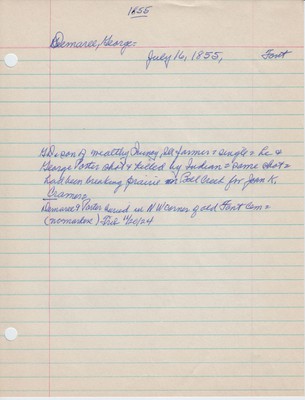 1855
Demaree, George
July 16, 1855, Font
G D = son of wealthy Quincy, Ill farmer = single = he &
George Porter shot & killed by Indian = same shot =
had been breaking prairie on Bell Creek for John K.
Cramer =
Demaree & Porter buried in NW corner of old Font Cem =
(no marker) = Trib